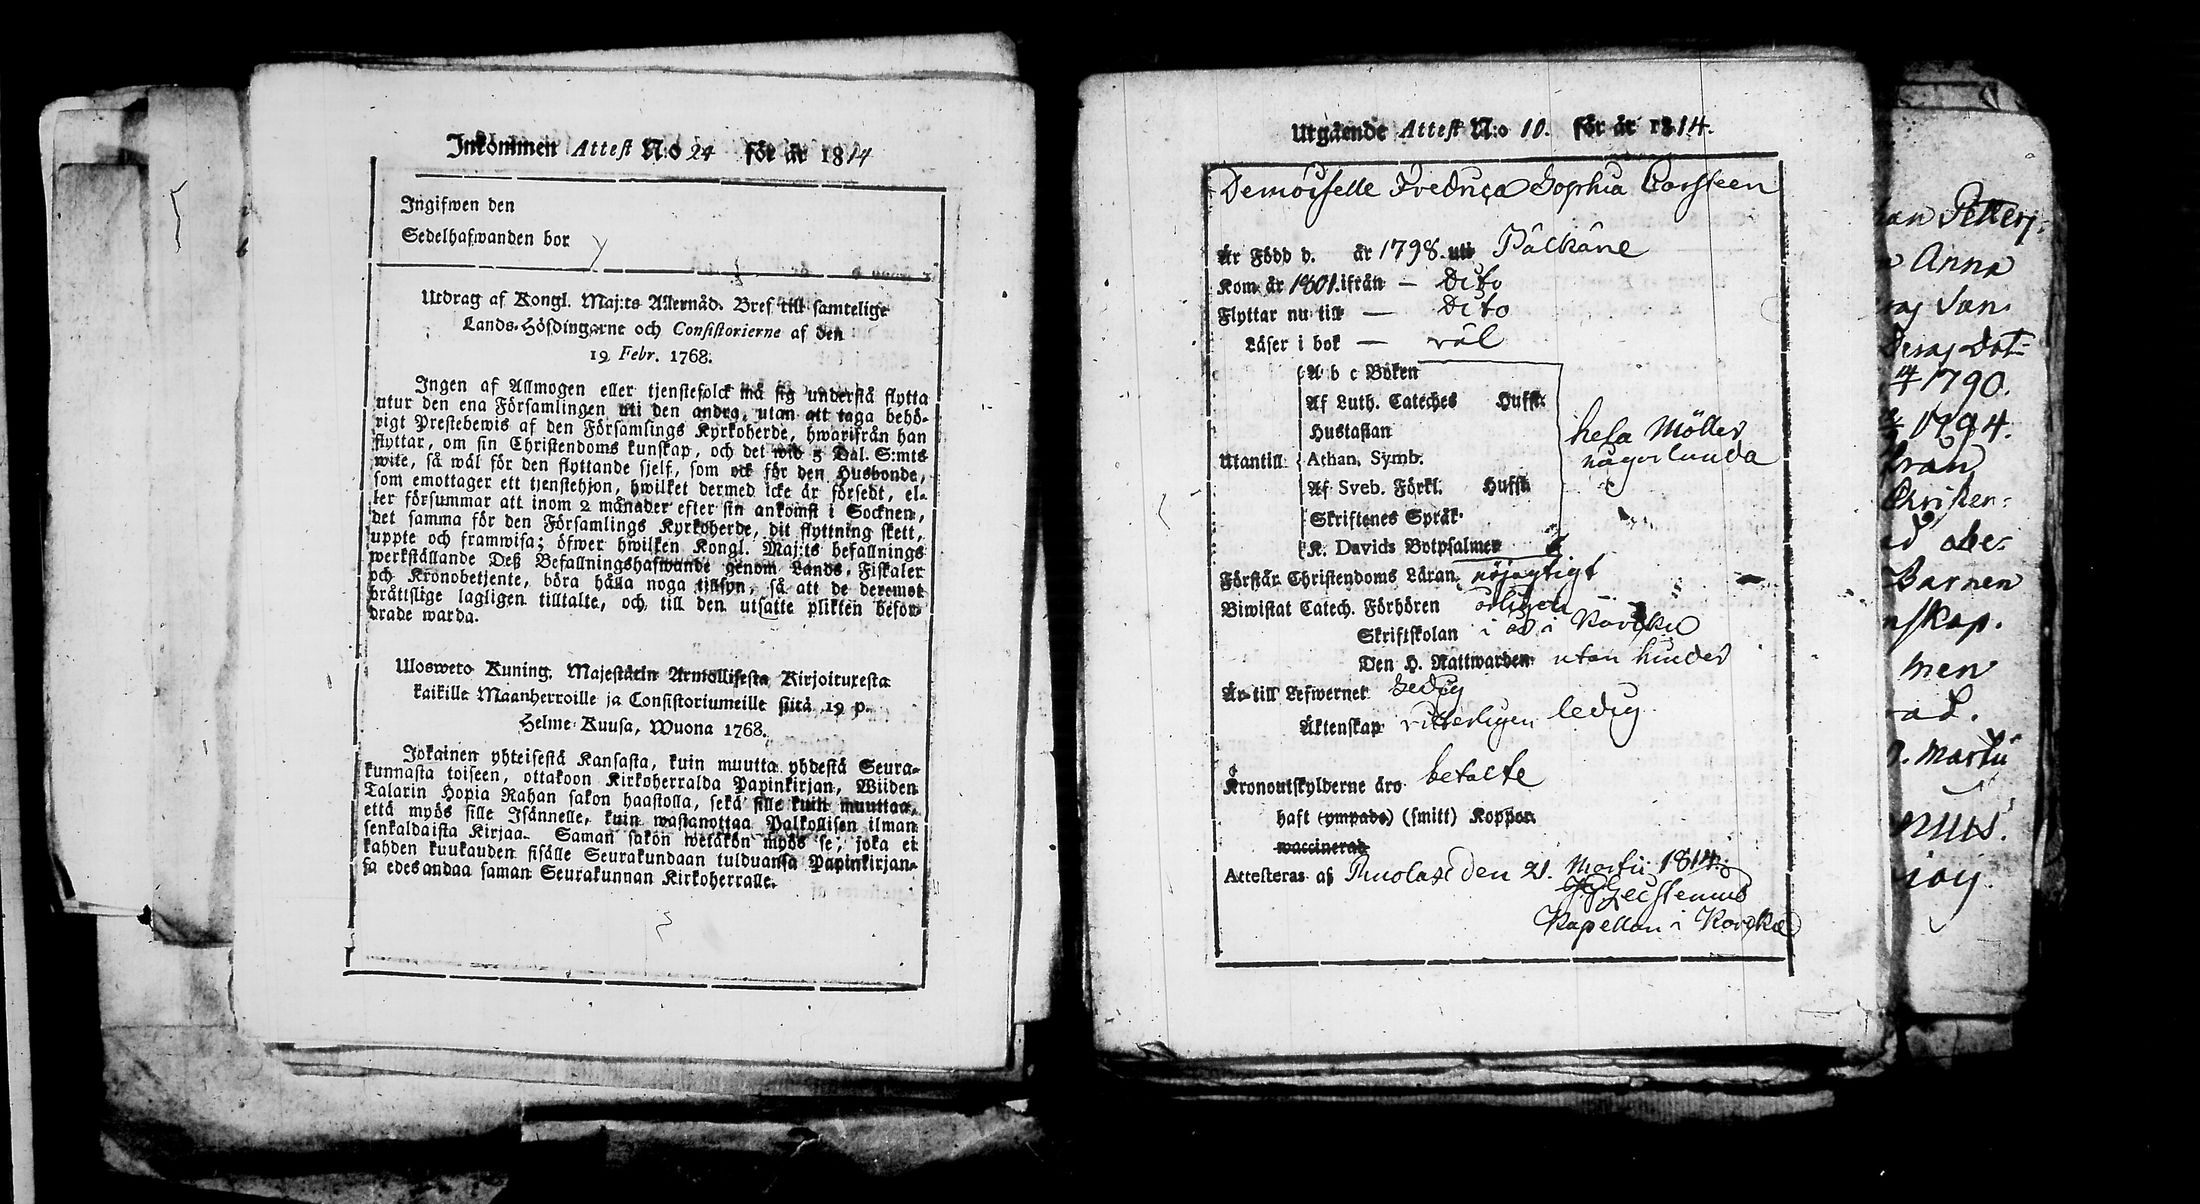 Inkommen Attest N:o 24 för år 1814
Ingifwen den
Sedelhafwanden bor
Utdrag af Kongl. Maj:ts Allernåd. Bref till samtelige
Lands-Höfdingarne och Consistorierne af den
19 Febr. 1768.
Ingen af Allmogen eller tjenstefolck må sig understå flytta
utur den ena Församlingen uti den andra, utan att taga behö-
rigt Prestebewis af den Församlings Kyrkoherde, hwarifrån han
flyttar, om sin Christendoms kunskap, och det wid 5 Dal. S:mts
wite, så wäl för den flyttande sjelf, som ock för den Husbonde,
som emottager ett tjenstehjon, hwilket dermed icke är försedt, el-
ler försummar att inom 2 månader efter sin ankomst i Socknen,
det samma för den Församlings Kyrkoherde, dit flyttning skett,
uppte och framwisa; öfwer hwilken Kongl. Maj:ts befallnings
werkställande Deß Befallningshafwande genom Lands-Fiskaler
och Kronobetjente, böra hålla noga tillsyn, så att de deremot
bråttslige lagligen tilltalte, och till den utsatte plikten beford-
drade warda.
Ulosweto Kuning. Majestätin Armollisesta Kirjoituxesta
kaikille Maanherroille ja Consistoriumeille siitä 19 p.
Helme-Kuusa, Wuona 1768.
Jokainen yhteisestä Kansasta, kuin muutta yhdestä Seura-
kunnasta toiseen, ottakoon Kirkoherralda Papinkirjan, Wiiden
Talarin Hopia Rahan sakon haastolla, sekä sille kuin muuttaa,
että myös sille Isännelle, kuin wastanottaa Palkollisen ilman
senkaldaista Kirjaa. Saman sakon wetäkön myös se, joka ei
kahden kuukauden sisälle Seurakundaan tulduansa Papinkirjan-
sa edesandaa saman Seurakunnan Kirkoherralle.
Utgående Attest N:o 10. för år 1814.
Demoiselle Fredrica Sophia Carsteen
Är Född d. år 1798. uti Pälkäne
Kom år 1801. ifrån — Dito
Flyttar nu till — Dito
Läser i bok — väl
A b c Boken
Af Luth. Cateches Hufst.
Hustaflan
Utantill Athan. Symb.
hela Möller
någorlunda
Af Sveb. Förkl. Hufst.
Skriftenes Språk
K. Davids Botpsalmer
Förstår Christendoms Läran nöjagtigt
Biwistat Catech. Förhören årligen
Skriftskolan i år i
Den H. Nattwarden utan hinder
Är till Lefwernet
Äktenskap ledig
Kronoutskylderne äro betalte
haft (ympade) (smitt) Koppor
waccinerad
Attesteras af den 21. Martii 1814.
Kapellan i
han Petters
Anna
Dot-
1790.
1794.
från
Christen-
Barnen
nskap.
men
Martii